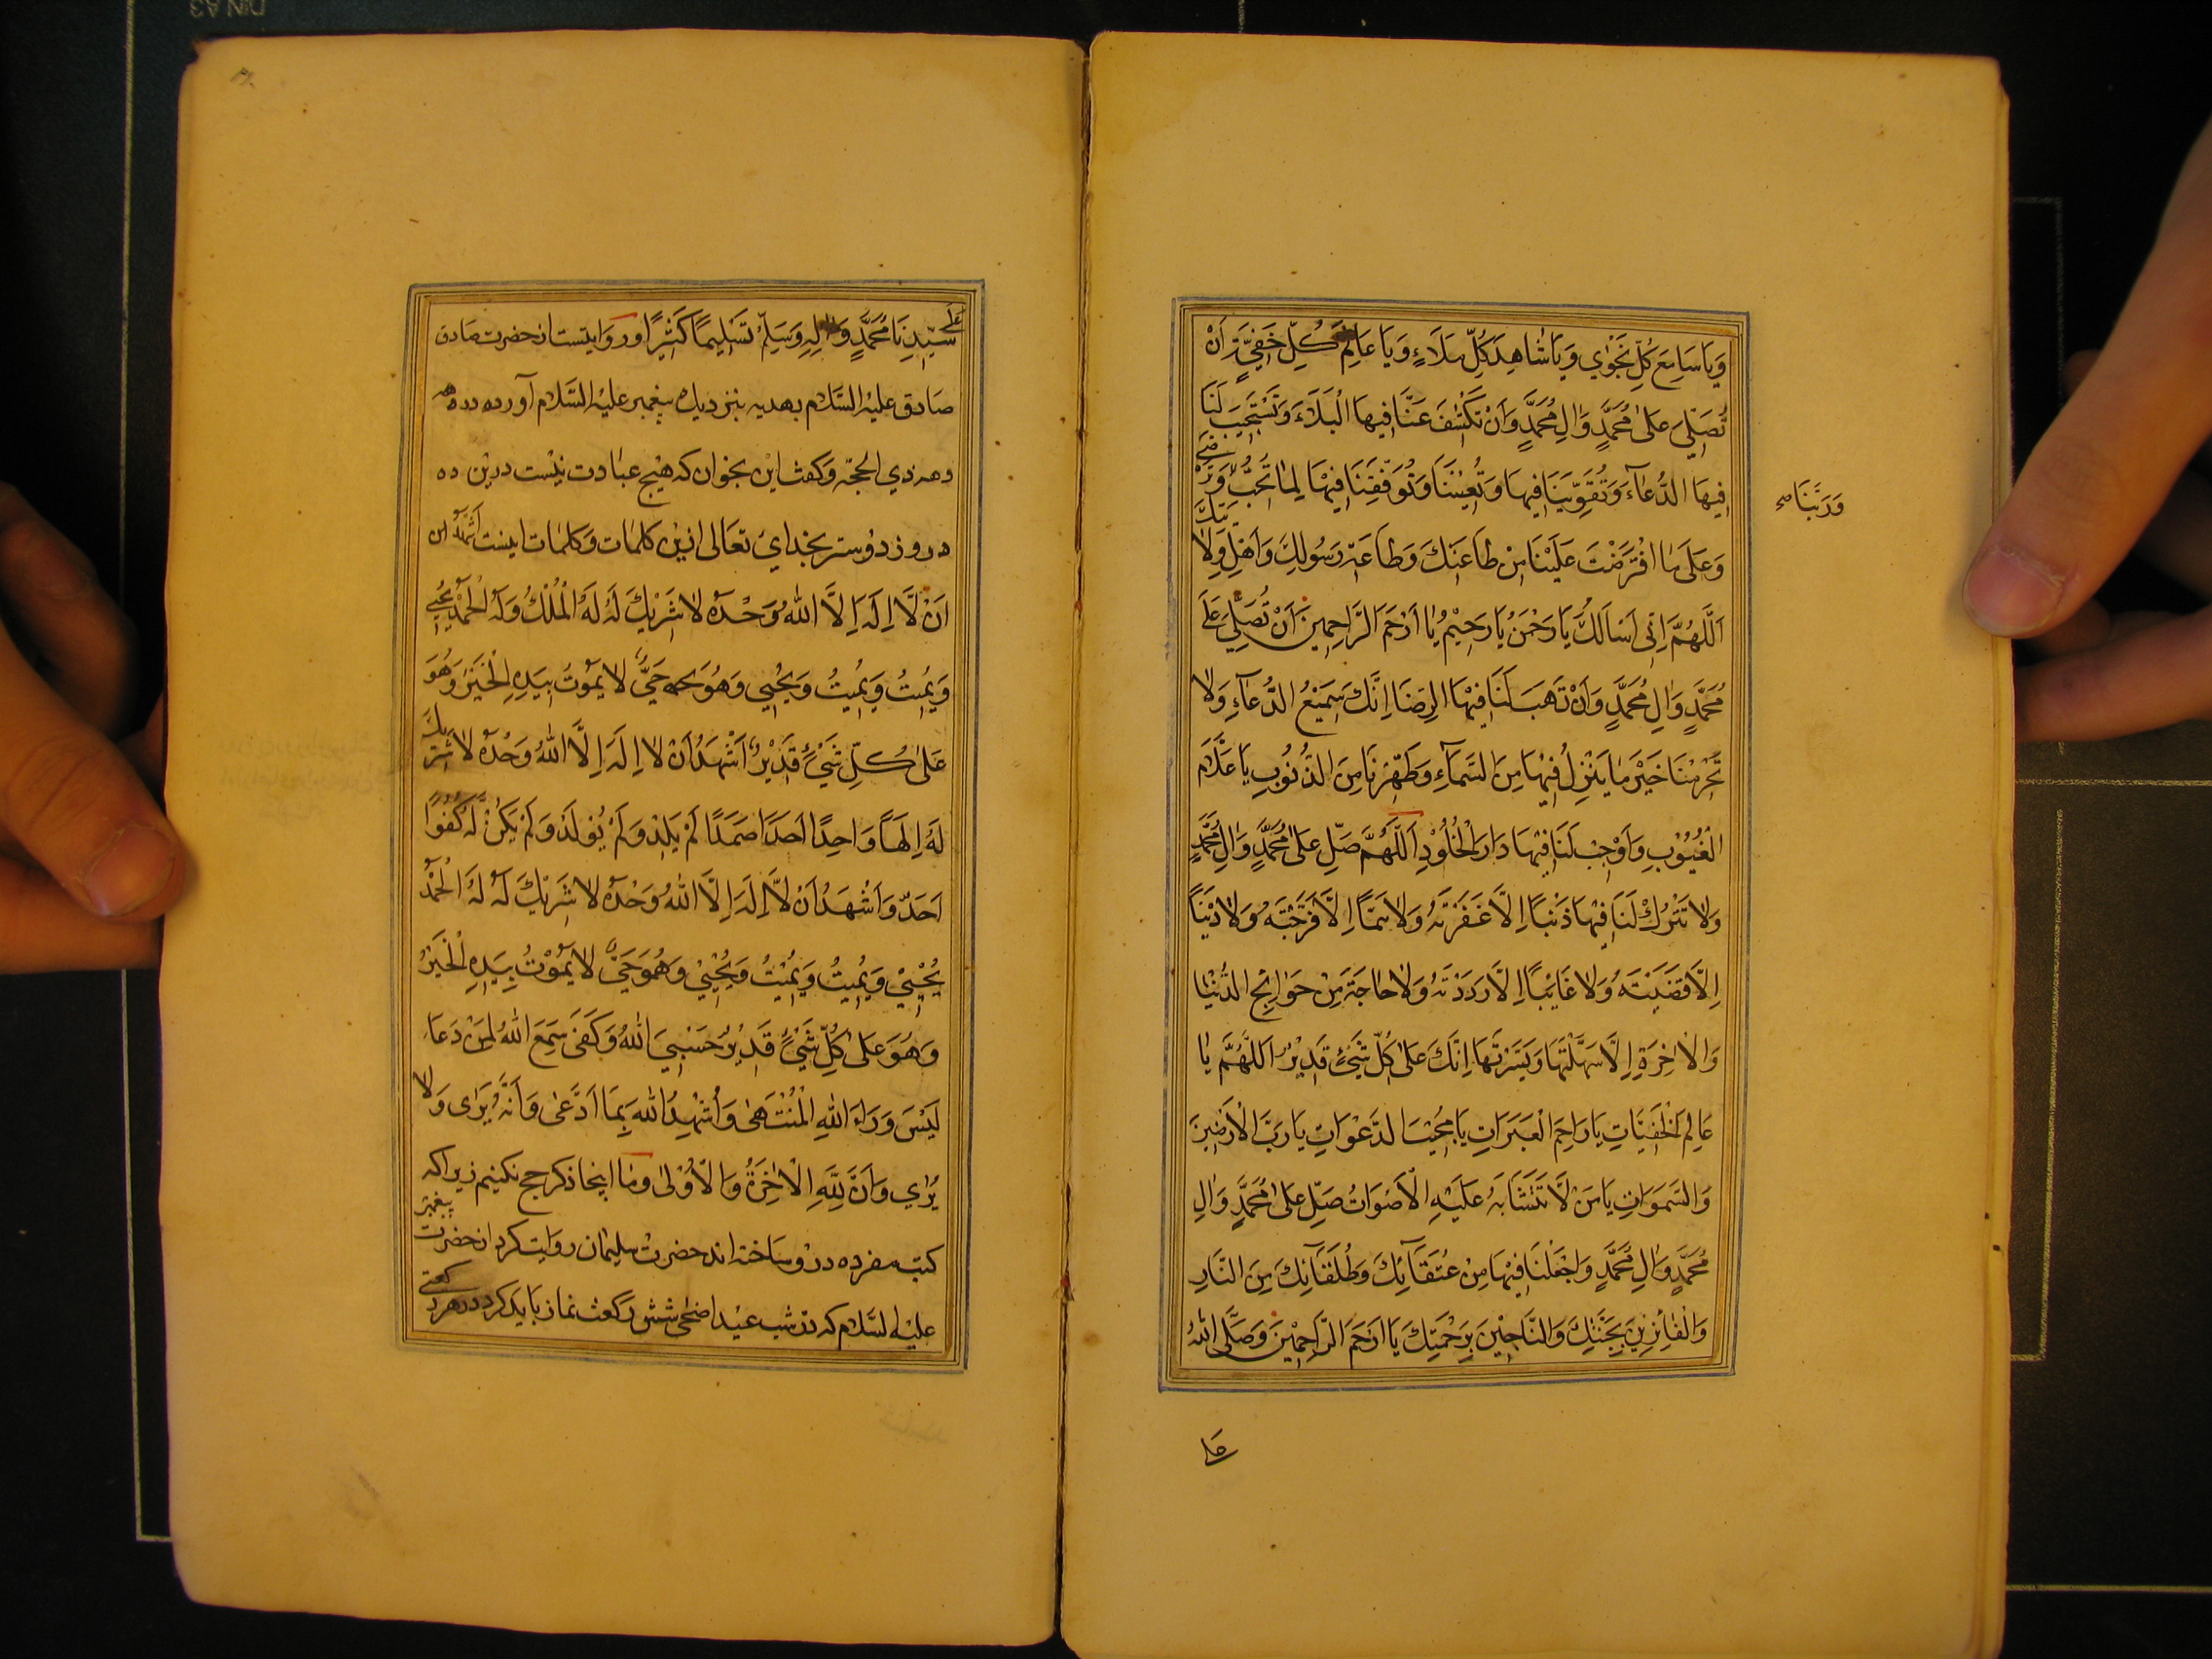 وَيَا سَامِعَ كُلِّ نَجْوٰي وَيَا شَاهِدَ كُلِّ مَلَاءٍ وَيَا عَالِمَ كُلِّ خَفِيَّةٍ اَنْ
تُصَلِّيَ عَلىٰ مُحَمَّدٍ وَاٰلِ مُحَمَّدٍ وَاَنْ تَكْشِفَ عَنَّا فِيهَا الْبَلَآءَ وَتَسْتَجِيبَ لَنَا
فِيهَا الدُّعَآءَ وَتُقَوِّيَنَا فِيهَا وَتُعِيْنَنَا وَتُوَفِّقَنَا فِيْهَا لِمَا تُحِبُّ وَتَرْضىٰ
وَرَبَّنَا صح
وَعَلَى مَا افْتَرَضْتَ عَلَيْنَا مِنْ طَاعَتِكَ وَطَاعَةِ رَسُولِكَ وَاَهْلِ وِلَايَتِكَ
اَللّٰهُمَّ اِنِّي اَسْاَلُكَ يَا رَحْمٰنُ يَا رَحِيْمُ يَا اَرْحَمَ الرَّاحِمِينَ اَنْ تُصَلِّيَ عَلَى
مُحَمَّدٍ وَاٰلِ مُحَمَّدٍ وَاَنْ تَهَبَ لَنَا فِيْهَا الرِّضَا اِنَّكَ سَمِيْعُ الدُّعَآءِ وَلَا
تَحْرِمْنَا خَيْرَ مَا يَنْزِلُ فِيْهَا مِنَ السَّمَآءِ وَطَهِّرْنَا مِنَ الذُّنُوبِ يَا عَلَّامَ
الْغُيُوْبِ وَاَوْجِبْ لَنَا فِيْهَا دَارَ الْخُلُوْدِ اَللّٰهُمَّ صَلِّ عَلىٰ مُحَمَّدٍ وَاٰلِ مُحَمَّدٍ
وَلَا تَتْرُكْ لَنَا فِيْهَا ذَنْبًا اِلَّا غَفَرْتَهُ وَلَا هَمًّا اِلَّا فَرَّجْتَهُ وَلَا دَيْنًا
اِلَّا قَضَيْتَهُ وَلَا غَايِبًا اِلَّا رَدَدْتَهُ وَلَا حَاجَةً مِنْ حَوَايِجِ الدُّنْيَا
وَالْاٰخِرَةِ اِلَّا سَهَّلْتَهَا وَيَسَّرْتَهَا اِنَّكَ عَلىٰ كُلِّ شَيْءٍ قَدِيْرٌ اَللّٰهُمَّ يَا
عَالِمَ الْخَفِيَّاتِ يَا رَاحِمَ الْعَبَرَاتِ يَا مُجِيْبَ الدَّعَوَاتِ يَا رَبَّ الْاَرَضِينَ
وَالسَّمٰوَاتِ يَا مَنْ لَا تَتَشَابَهُ عَلَيْهِ الْاَصْوَاتُ صَلِّ عَلىٰ مُحَمَّدٍ وَاٰلِ
مُحَمَّدٍ وَاٰلِ مُحَمَّدٍ وَاجْعَلْنَا فِيْهَا مِنْ عُتَقَآئِكَ وَطُلَقَآئِكَ مِنَ النَّارِ
وَالْفَائِزِينَ بِجَنَّتِكَ وَالنَّاجِيْنَ بِرَحْمَتِكَ يَا اَرْحَمَ الرَّاحِمِيْنَ وَصَلَّى اللّٰهُ
عَلىٰ
سَيِّدِنَا مُحَمَّدٍ وَاٰلِهِ وَسَلِّمْ تَسْلِيمًا كَثِيرًا وروايتست از حضرت صادق
صادق عليه السَّلام بهديه بنزديك پيغمبر عليه السَّلام آورده درده
دهه ذي الحجّه وكفت اين بخوان كه هيچ عبادت نيست درين ده
ده روز دوستر بخداي تعالى ازين كلمات وكلمات اينست اَشْهَدُ اَن
اَنْ لَّا اِلَهَ اِلَّا اللّٰهُ وَحْدَهُ لَا شَرِيْكَ لَهُ لَهُ الْمُلْكُ وَلَهُ الْحَمْدُ يُحْيِي
وَيُمِيتُ وَيُمِيْتُ وَيُحْيِي وَهُوَ حَيٌّ لَا يَمُوْتُ بِيَدِهِ الْخَيْرُ وَهُوَ
عَلىٰ كُلِّ شَيْءٍ قَدِيْرٌ اَشْهَدُ اَنْ لَا اِلَهَ اِلَّا اللّٰهُ وَحْدَهُ لَا شَرِيكَ
لَهُ اِلَهًا وَاحِدًا اَحَدًا صَمَدًا لَمْ يَلِدْ وَلَمْ يُوْلَدْ وَلَمْ يَكُنْ لَّهُ كُفُوًا
اَحَدٌ وَاَشْهَدُ اَنْ لَّا اِلَهَ اِلَّا اللّٰهُ وَحْدَهُ لَا شَرِيْكَ لَهُ لَهُ الْحَمْدُ
يُحْيِيْ وَيُمِيتُ وَيُمِيْتُ وَيُحْيِيْ وَهُوَ حَيٌّ لَا يَمُوْتُ بِيَدِهِ الْخَيْرُ
وَهُوَ عَلىٰ كُلِّ شَيْءٍ قَدِيْرٌ حَسْبِيَ اللّٰهُ وَكَفَى سَمِعَ اللّٰهُ لِمَنْ دَعَا
لَيْسَ وَرَاءَ اللّٰهِ الْمُنْتَهىٰ وَاُشْهِدُ اللّٰهَ بِمَا ادَّعىٰ وَاَنَّهُ يَرىٰ وَلَا
يُرٰي وَاَنَّ لِلّٰهِ الْاٰخِرَةُ وَالْاُوْلىٰ وما اينجا ذكر حج نكنيم زيرا كه
كتب مفرده درو ساخته اند حضرت سليمان روايت كرد از حضرت پيغمبر
عليه السَّلام كه در شب عيد اضحى شش ركعت نماز بايد كرد در هر ركعتي